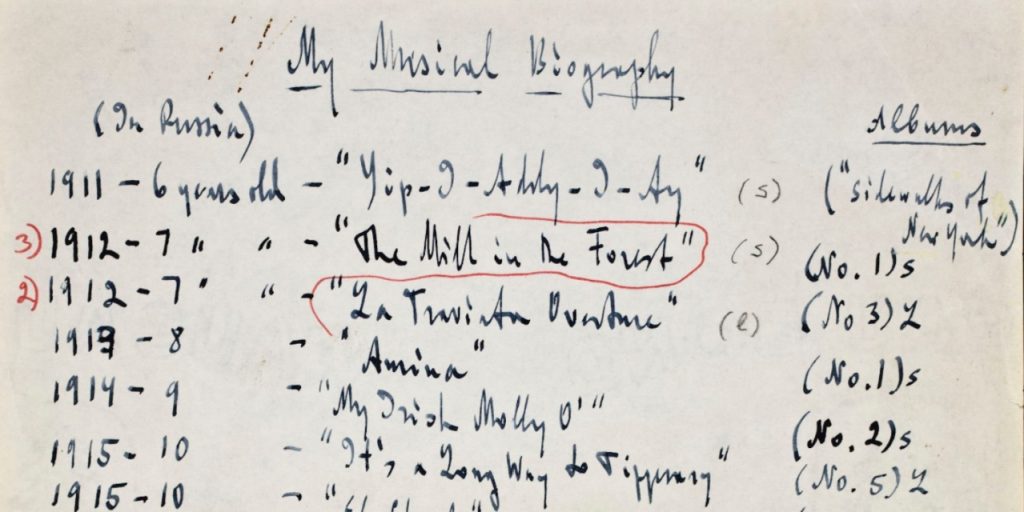 My Musical Biography
(In Russia)
Albums
1911 - 6 years old - "Yip-I-Addy-I-Ay" (s) ("Sidewalks of New York")
3) 1912 - 7 " " - "The Mill in the Forest" (s) (No. 1)s
2) 1912 - 7 " " - "La Traviata Overture" (l) (No 3) L
1913 - 8 - "Amina" (No. 1)s
1914 - 9 - "My Irish Molly O'" (No. 2)s
1915 - 10 - "It's a Long Way to Tipperary" (No. 5) L
1915 - 10 - "